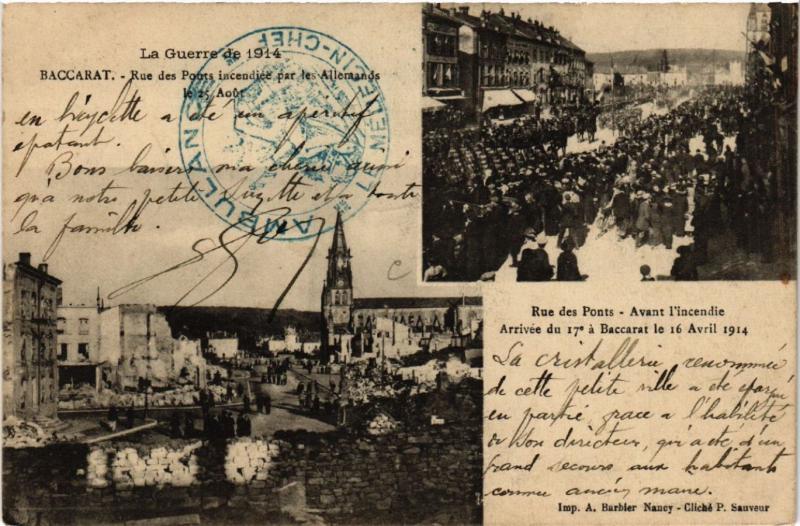 La Guerre de 1914
BACCARAT. - Rue des Ponts incendiée par les Allemands
le 25 Août
en bicyclette a été un apéritif
épatant.
Bons baisers ma chérie ainsi
qu'à notre petite Suzette et à toute
la famille.
AMBULANCE
MÉDECIN-CHEF
Rue des Ponts - Avant l'incendie
Arrivée du 17e à Baccarat le 16 Avril 1914
La cristallerie, renommée
de cette petite ville a été épargnée
en partie, grace a l'habileté
de son directeur, qui a été d'un
grand secours aux habitants
comme ancien maire.
Imp. A. Barbier Nancy - Cliché P. Sauveur